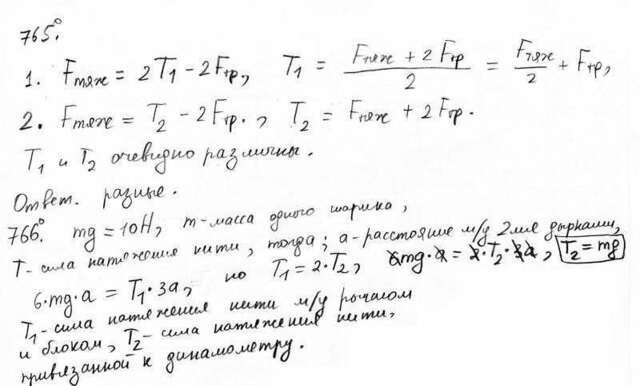 765°
1. Fтяж = 2T₁ - 2Fтр, T₁ = (Fтяж + 2Fтр)/2 = Fтяж/2 + Fтр,
2. Fтяж = T₂ - 2Fтр., T₂ = Fтяж + 2Fтр.
T₁ и T₂ очевидно различны.
Ответ. разные.
766° mg = 10H, m-масса одного шарика,
T- сила натяжения нити, тогда; a-расстояние м/у 2мя дырками,
6·mg·a = T₁·3a, но T₁ = 2·T₂, 6mg·a = 2·T₂·3a, T₂ = mg
T₁-сила натяжения нити м/у рычагом
и блоком, T₂-сила натяжения нити,
привязанной к динамометру.